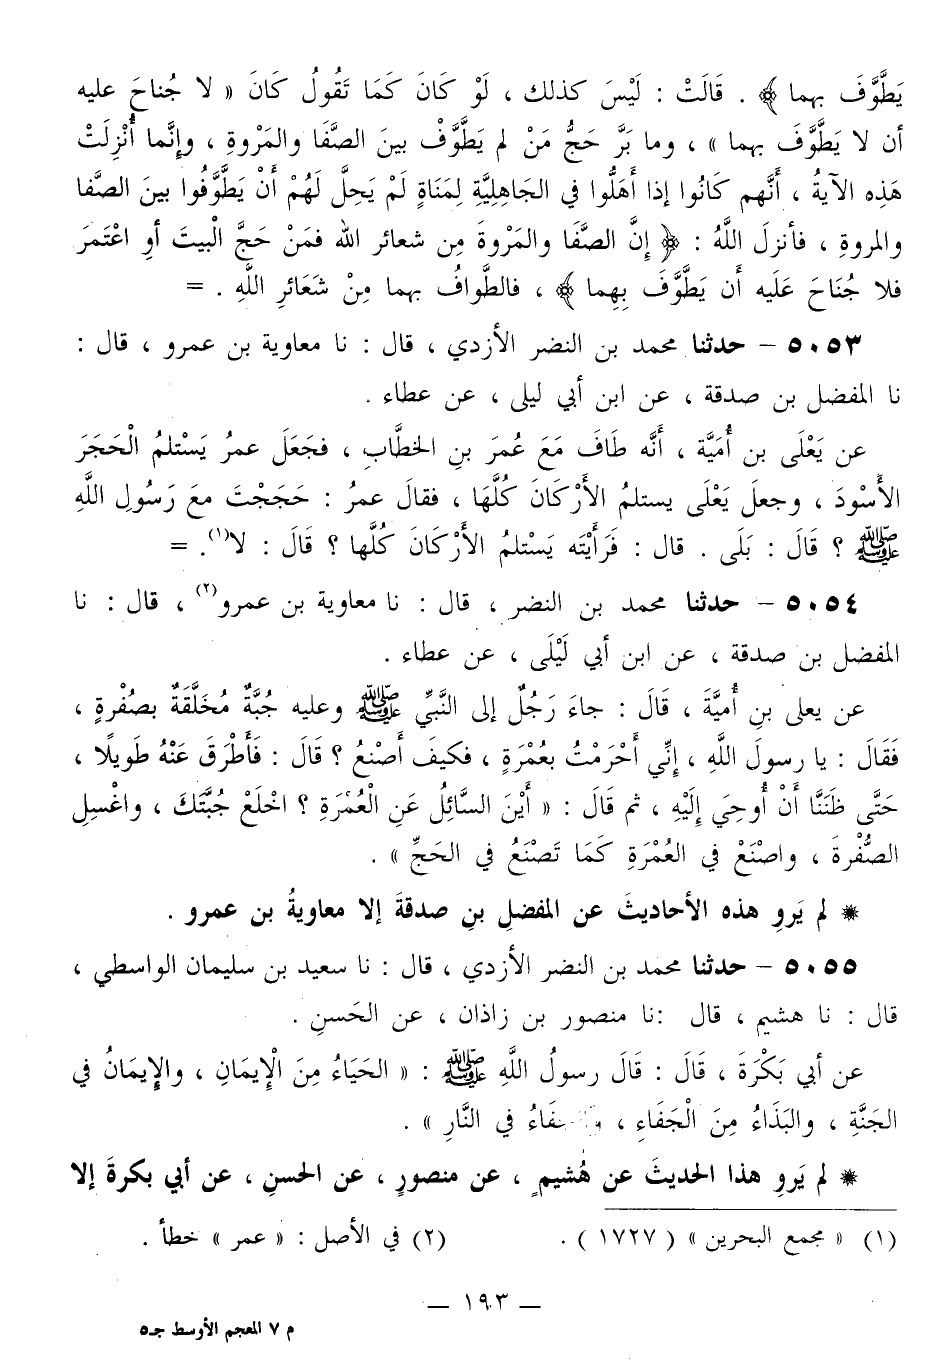 يَطَّوَّفَ بهما ﴾ . قَالَتْ : لَيْسَ كذلك ، لَوْ كَانَ كَمَا تَقُولُ كَانَ « لا جُناحَ عليه
أن لا يَطَّوَّفَ بهما » ، وما بَرَّ حَجُّ مَنْ لم يَطَّوَّفْ بينَ الصَّفَا والمَرْوةِ ، وإنَّما أُنْزِلَتْ
هَذِه الآيةُ ، أَنَّهم كَانُوا إذا أَهَلُّوا في الجَاهِلِيَّةِ لِمَنَاةٍ لَمْ يَحِلَّ لَهُمْ أَنْ يَطَّوَّفُوا بينَ الصَّفا
والمروةِ ، فأنزلَ اللَّهُ : ﴿ إنَّ الصَّفَا والمَرْوةَ مِن شعائر الله فمَنْ حَجَّ الْبيتَ أوِ اعْتَمَرَ
فلا جُنَاحَ عَلَيه أَن يَطَّوَّفَ بِهِما ﴾ ، فالطَّوافُ بهما مِنْ شَعَائرِ اللَّهِ . =
٥٠٥٣ – حدثنا محمد بن النضر الأزدي ، قال : نا معاوية بن عمرو ، قال :
نا المفضل بن صدقة ، عن ابن أبي ليلى ، عن عطاء .
عن يَعْلَى بن أُمَيَّة ، أَنَّه طَافَ مَعَ عُمرَ بنِ الخطَّابِ ، فجَعَلَ عمرُ يَسْتلمُ الْحَجَرَ
الأَسْودَ ، وجعلَ يَعْلَى يستلمُ الأَرْكَانَ كُلَّهَا ، فقالَ عمرُ : حَجَجْتَ معَ رَسُولِ اللَّهِ
ﷺ ؟ قَالَ : بَلَى . قال : فَرَأَيْتَه يَسْتلمُ الأَرْكَانَ كُلَّها ؟ قَالَ : لا(١). =
٥٠٥٤ – حدثنا محمد بن النضر ، قال : نا معاوية بن عمرو(٢) ، قال : نا
المفضل بن صدقة ، عن ابن أبي لَيْلَى ، عن عطاء .
عن يعلى بنِ أُميَّةَ ، قَالَ : جاءَ رَجُلٌ إلى النَّبيِّ ﷺ وعليه جُبَّةٌ مُخَلَّقَةٌ بصُفْرةٍ ،
فَقَالَ : يا رسولَ اللَّهِ ، إنِّي أَحْرَمْتُ بعُمْرَةٍ ، فكيفَ أَصْنعُ ؟ قَالَ : فَأَطْرَقَ عَنْهُ طَويلًا ،
حَتَّى ظَنَنَّا أَنْ أُوحِيَ إلَيْهِ ، ثم قَالَ : « أَيْنَ السَّائلُ عَنِ الْعُمْرَةِ ؟ اخْلَعْ جُبَّتَكَ ، واغْسِلِ
الصُّفْرةَ ، واصْنَعْ في العُمْرَةِ كَمَا تَصْنَعُ في الحَجِّ » .
* لم يَروِ هذه الأحاديثَ عن المفضلِ بنِ صدقةَ إلا معاويةُ بن عمرو .
٥٠٥٥ – حدثنا محمد بن النضر الأزدي ، قال : نا سعيد بن سليمان الواسطي ،
قال : نا هشيم ، قال :نا منصور بن زاذان ، عن الحَسنِ .
عن أبي بَكْرَةَ ، قَالَ : قَالَ رسولُ اللَّهِ ﷺ : « الحَيَاءُ مِنَ الْإيمَانِ ، والإيمَانُ في
الجَنَّةِ ، والبَذَاءُ مِنَ الْجَفَاءِ ، والجفَاءُ في النَّارِ » .
* لم يَروِ هذا الحديثَ عن هُشيمٍ ، عن منصورٍ ، عن الحسنِ ، عن أبي بكرةَ إلا
(١) « مجمع البحرين » ( ١٧٢٧ ) . (٢) في الأصل : « عمر » خطأ .
— ١٩٣ —
م ٧ المعجم الأوسط جـ٥